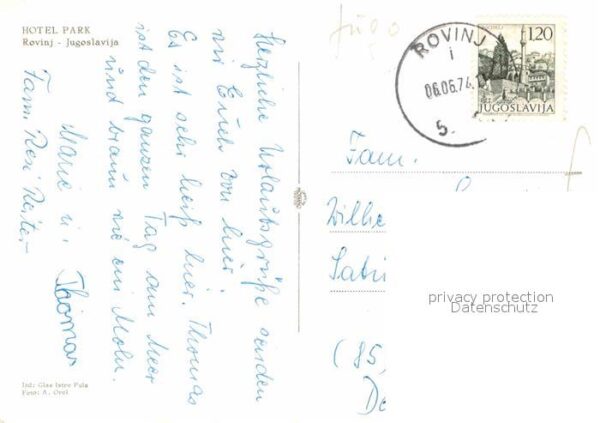 HOTEL PARK
Rovinj - Jugoslavija
Herzliche Urlaubsgrüße senden
wir Euch von hier.
Es ist sehr heiß hier. Thomas
ist den ganzen Tag am Meer
und braun wie ein Mohr.
Marie u. Thomas
Fam.
Izd: Glas Istre Pula
Foto: A. Orel
Jugo
ROVINJ
i
06.06.74
5.
1,20
JUGOSLAVIJA
Fam.
Wilhe
Sabi
(85
De
privacy protection
Datenschutz